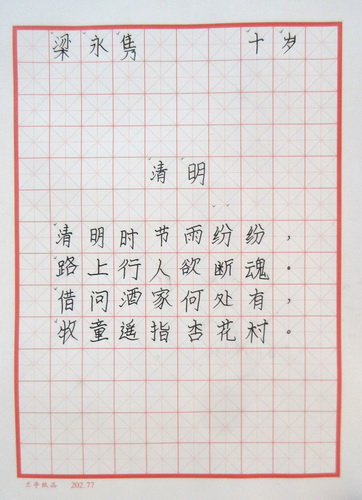 梁永隽 十岁
清明
清明时节雨纷纷，
路上行人欲断魂。
借问酒家何处有，
牧童遥指杏花村。
202.77